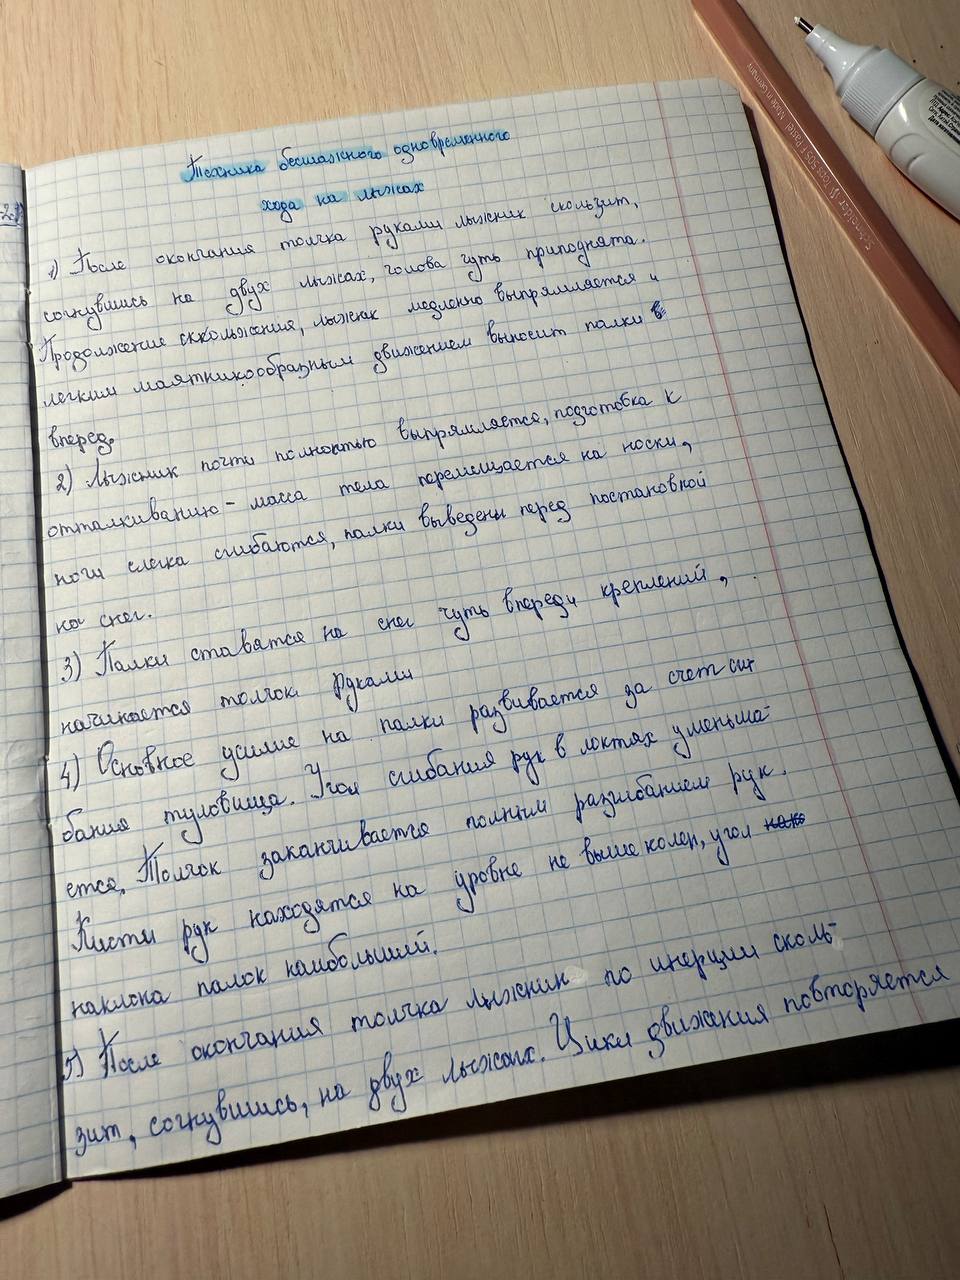 Техника бесшажного одновременного
хода на лыжах
1) После окончания толчка руками лыжник скользит,
согнувшись на двух лыжах, голова чуть приподнята.
Продолжение сккольжения, лыжник медленно выпрямляется и
легким маятникообразным движением выносит палки
вперед.
2) Лыжник почти полностью выпрямляется, подготовка к
отталкиванию - масса тела перемещается на носки,
ноги слегка сгибаются, палки выведены перед постановкой
на снег.
3) Палки ставятся на снег чуть впереди креплений,
начинается толчок руками
4) Основное усилие на палки развивается за счет сги
бания туловища. Угол сгибания рук в локтях уменьша-
ется. Толчок заканчивается полным разгибанием рук.
Кисти рук находятся на уровне не выше колен, угол
наклона палок наибольший.
5) После окончания толчка лыжник по инерции сколь-
зит, согнувшись, на двух лыжах. Цикл движения повторяется
Schneider Tops 505 F Pastel Made in Germany